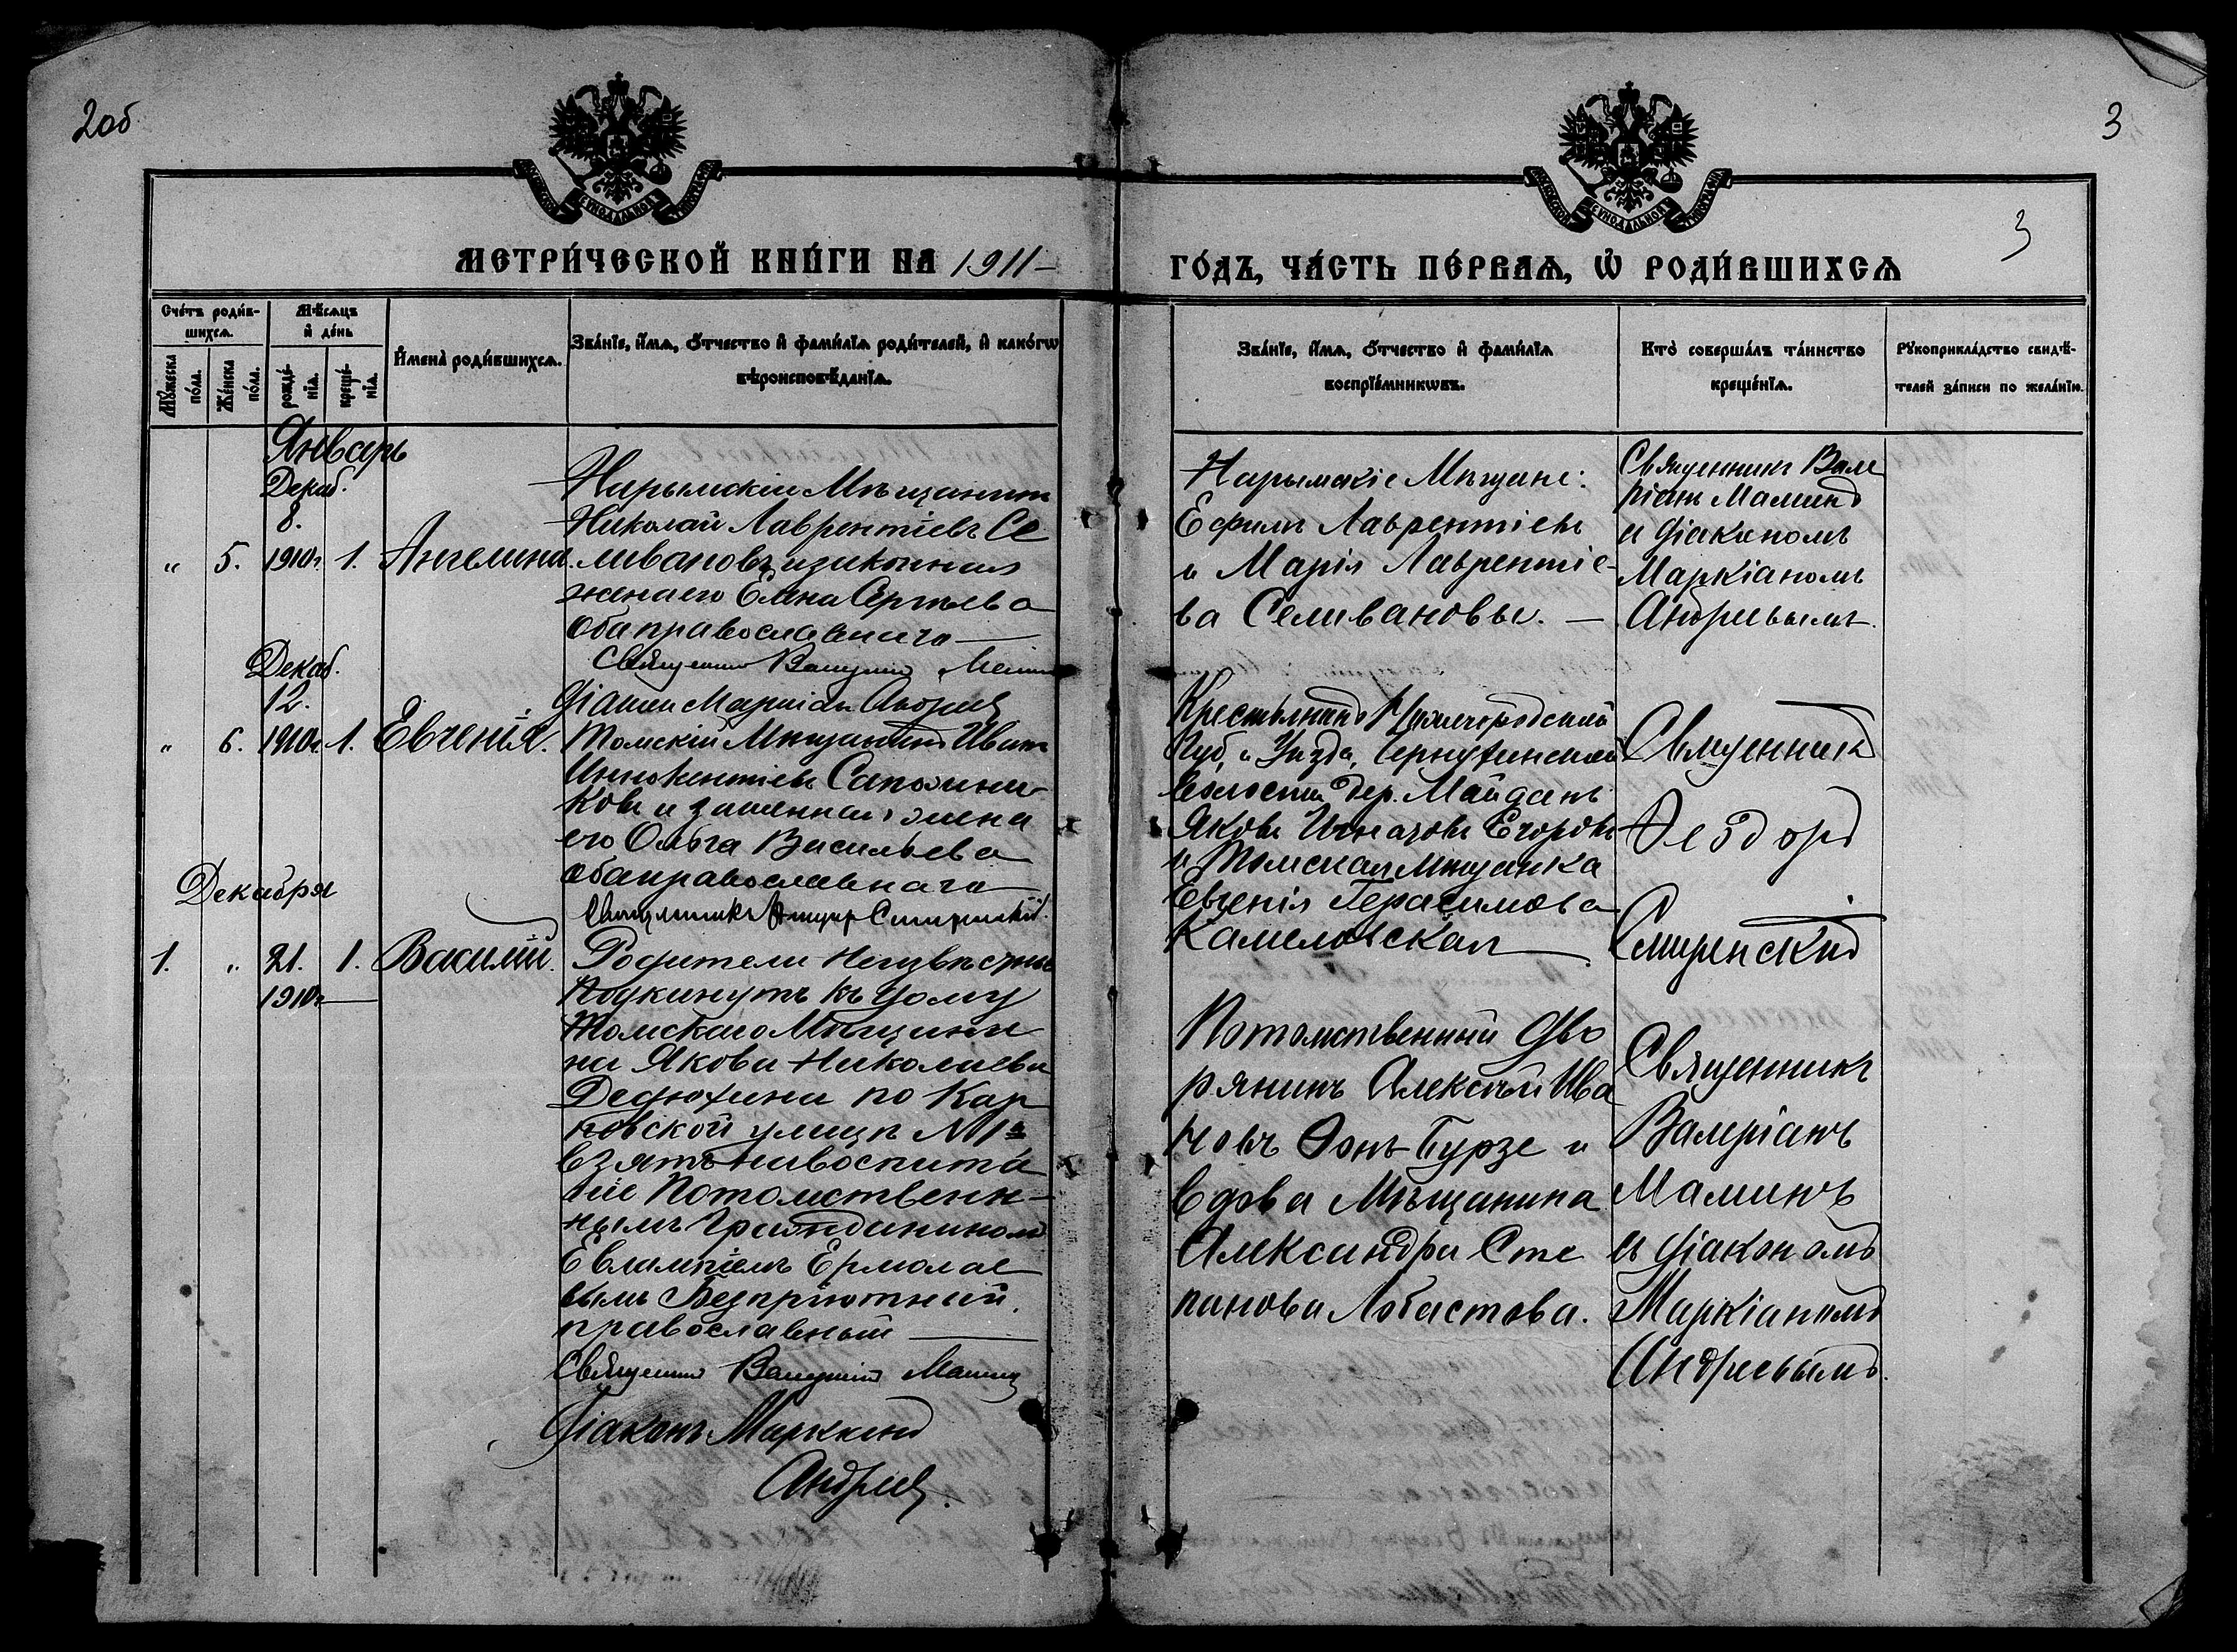 2об
3
3
МЕТРИ́ЧЕСКОЙ КНИ́ГИ НА 1911 –
ГО́ДЪ, ЧА́СТЬ ПЕ́РВАѦ, Ѽ РОДИ́ВШИХСѦ
Сче́тъ роди́в-
шихсѧ.
Мѣ́сѧцъ
и҆ де́нь
Мꙋ́жеска
по́ла.
Же́нска
по́ла.
рожде́-
нїѧ.
креще́-
нїѧ.
И҆мена̀ роди́вшихсѧ.
Зва́нїе, и҆́мѧ, ѻ҆́тчество и҆ фами́лїѧ роди́телей, и҆ како́гѡ
вѣроисповѣ́данїѧ.
Зва́нїе, и҆́мѧ, ѻ҆́тчество и҆ фами́лїѧ
воспрїе́мникѡвъ.
Кто̀ соверша́лъ та́инство
креще́нїѧ.
Рꙋкоприкла́дство свидѣ́-
телей за́писи по жела́нїю.
Январь
Декаб.
8.
" 5. 1910г. 1. Ангелина.
Нарымскій Мѣщанинъ
Николай Лаврентіевъ Се
ливановъ и законная
жена его Елена Сергѣева
оба православнаго
Священникъ Валеріан Мамин
Діакон Маркіан Андреев
Нарымскіе Мѣщане:
Ефимъ Лаврентіевъ
и Марія Лаврентіе-
ва Селивановы. –
Священникъ Вале
ріанъ Маминъ
и діакономъ
Маркіаномъ
Андреевымъ.
Декаб.
12.
" 6. 1910г. 1. Евгенія.
Томскій Мѣщанинъ Иванъ
Иннокентіевъ Сапожни-
ковъ и законная жена
его Ольга Васильева
оба православнаго
Священникъ Смиренскій
Крестьянинъ Нижегородской
Губ, и Уѣзда,
волости дер. Майданъ
Яковъ Игнатовъ Егоровъ
и Томская Мѣщанка
Евгенія Герасимова
Камеловская
Священникъ
Ѳеодоръ
Смиренскій
Декабря
1. " 21. 1. Василій.
1910г.
Родители Неизвѣстны
Подкинутъ къ дому
Томскаго Мѣщани
на Якова Николаева
Дедюхина по Кар
повской улицѣ №1а
взятъ на воспита
ніе Потомствен-
нымъ Гражданиномъ
Евлампіемъ Ермолае
вымъ Безпріютный.
православный
Священникъ Валеріан Мамин
Діаконъ Маркіанъ
Андреев.
Потомственный Дво
рянинъ Алексѣй Ива
новъ Фонъ-Бурзе и
вдова Мѣщанина
Александра Сте
панова Лобастова.
Священникъ
Валеріанъ
Маминъ
и діакономъ
Маркіаномъ
Андреевымъ.